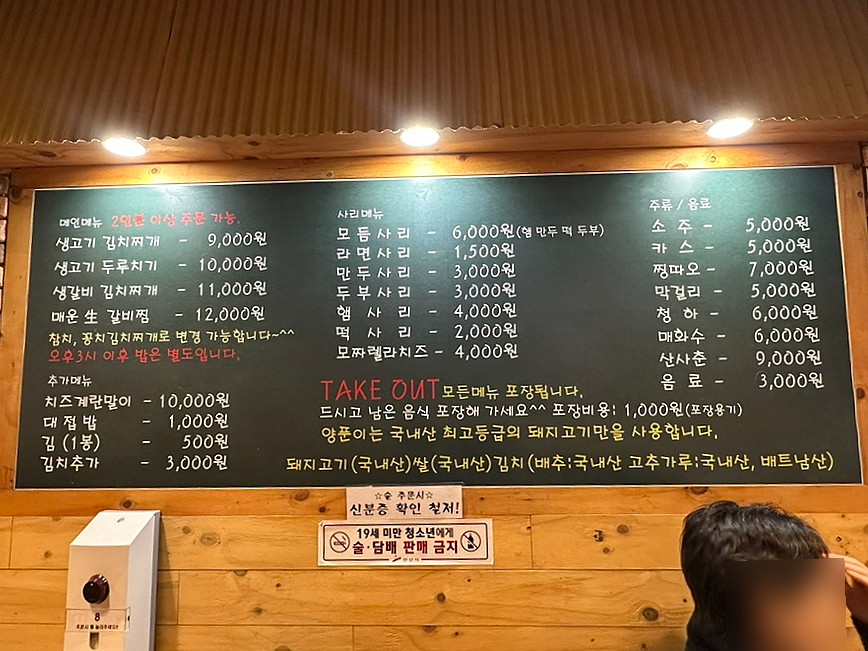 메인메뉴 2인분 이상 주문 가능.
생고기 김치찌개 - 9,000원
생고기 두루치기 - 10,000원
생갈비 김치찌개 - 11,000원
매운 生 갈비찜 - 12,000원
참치, 꽁치김치찌개로 변경 가능합니다~^^
오후3시 이후 밥은 별도입니다.
추가메뉴
치즈계란말이 - 10,000원
대접밥 - 1,000원
김 (1봉) - 500원
김치추가 - 3,000원
사리메뉴
모듬사리 - 6,000원(햄 만두 떡 두부)
라면사리 - 1,500원
만두사리 - 3,000원
두부사리 - 3,000원
햄 사리 - 4,000원
떡 사리 - 2,000원
모짜렐라치즈 - 4,000원
주류 / 음료
소주 - 5,000원
카스 - 5,000원
찡따오 - 7,000원
막걸리 - 5,000원
청하 - 6,000원
매화수 - 6,000원
산사춘 - 9,000원
음료 - 3,000원
TAKE OUT 모든메뉴 포장됩니다.
드시고 남은 음식 포장해 가세요^^ 포장비용: 1,000원(포장용기)
양푼이는 국내산 최고등급의 돼지고기만을 사용합니다.
돼지고기(국내산)쌀(국내산)김치(배추:국내산 고추가루:국내산, 베트남산)
☆술 주문시☆
신분증 확인 철저!
19세 미만 청소년에게
술·담배 판매 금지
8